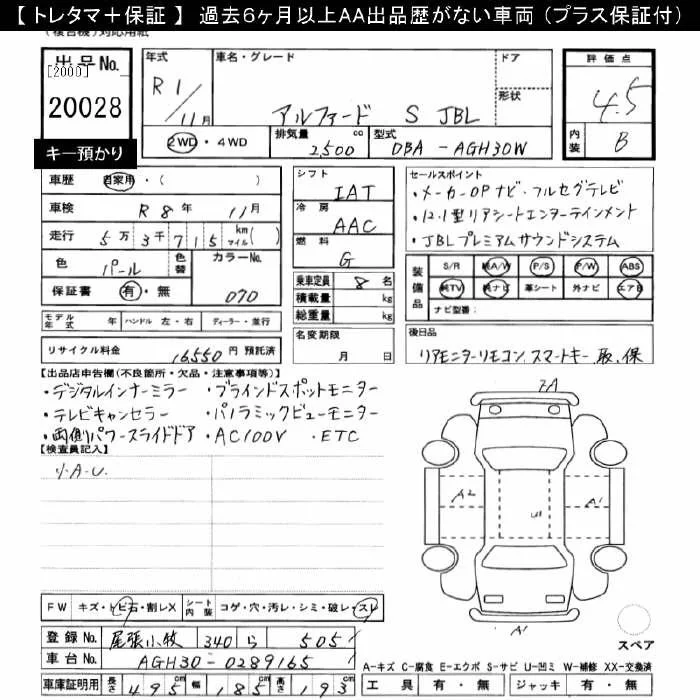 【トレタマ＋保証】 過去６ヶ月以上AA出品歴がない車両（プラス保証付）
(複合機)対応用紙
出品No.
[2000]
20028
キー預かり
年式 R1/11月
車名・グレード アルファード S JBL
ドア
形状
評価点 4.5
内装 B
2WD・4WD
排気量 2,500 cc
型式 DBA-AGH30W
車歴 自家用・( )
車検 R 8年 11月
走行 5万3千715 km マイル( )
色 パール
色替
カラーNo. 070
保証書 有・無
モデル年式 年 ハンドル 左・右 ディーラー・並行
リサイクル料金 16,550円 預託済
シフト IAT
冷房 AAC
燃料 G
乗車定員 8名
積載量 kg
総重量 kg
名変期限
月 日
セールスポイント
・メーカーOPナビ・フルセグテレビ
・12.1型リアシートエンターテインメント
・JBLプレミアムサウンドシステム
装備品 S/R 純A/W P/S P/W ABS
純TV 純ナビ 革シート 外ナビ エアB
ナビ型番:
後日品
リアモニターリモコン、スマートキー、取、保
【出品店申告欄(不良箇所・欠品・注意事項等)】
・デジタルインナーミラー ・ブラインドスポットモニター
・テレビキャンセラー ・パノラミックビューモニター
・両側パワースライドドア ・AC100V ・ETC
【検査員記入】
リ.A-U.
A2
A1
U1
A1
FW キズ・トビ石・割レX
シート内装 コゲ・穴・汚レ・シミ・破レ・スレ
スペア
登録No. 尾張小牧 340 ら 505
車台No. AGH30-0289165
車庫証明用 長さ 495cm 幅 185cm 高さ 193cm
A-キズ C-腐食 E-エクボ S-サビ U-凹ミ W-補修 XX-交換済
工具 有・無 ジャッキ 有・無